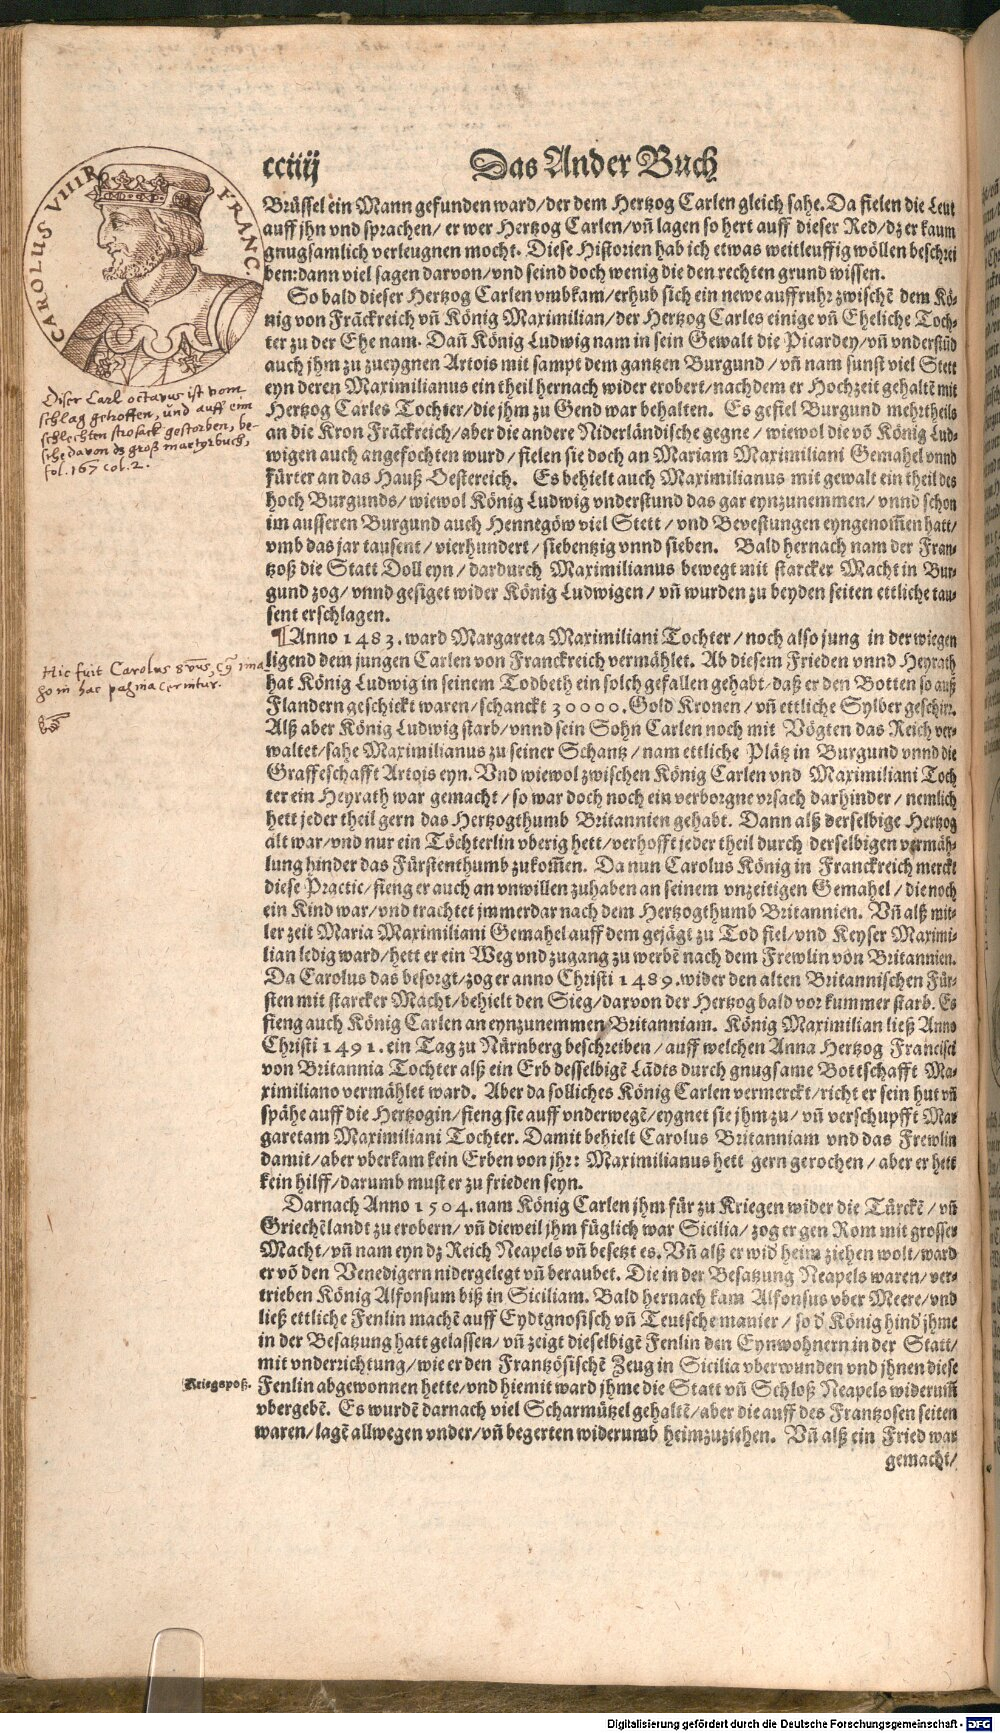 cciiij
Das Ander Buch
CAROLUS VIII R FRANC.
Brüssel ein Mann gefunden ward/der dem Hertzog Carlen gleich sahe. Da fielen die Leut
auff jhn vnd sprachen/ er wer Hertzog Carlen/vñ lagen so hert auff dieser Red/dz er kaum
gnugsamlich verleugnen mocht. Diese Historien hab ich etwas weitleuffig wöllen beschrei
ben: dann viel sagen darvon/vnd seind doch wenig die den rechten grund wissen.
So bald dieser Hertzog Carlen vmbkam/erhub sich ein newe auffruhr zwischẽ dem Kö-
nig von Frãckreich vñ König Maximilian/der Hertzog Carles einige vñ Eheliche Toch-
ter zu der Ehe nam. Dañ König Ludwig nam in sein Gewalt die Picardey/vñ vnderstũd
auch jhm zu zueygnen Artois mit sampt dem gantzen Burgund/ vñ nam sunst viel Stett
eyn deren Maximilianus ein theil hernach wider erobert/nachdem er Hochzeit gehaltẽ mit
Hertzog Carles Tochter/die jhm zu Gend war behalten. Es gefiel Burgund mehrtheils
an die Kron Frãckreich/aber die andere Niderländische gegne/ wiewol die võ König Lud-
wigen auch angefochten wurd/ fielen sie doch an Mariam Maximiliani Gemahel vnnd
fürter an das Hauß Oestereich. Es behielt auch Maximilianus mit gewalt ein theil des
hoch Burgunds/wiewol König Ludwig vnderstund das gar eynzunemmen/ vnnd schon
im ausseren Burgund auch Hennegöw viel Stett/ vnd Bevestungen eyngenom̃en hatt/
vmb das jar tausent/ vierhundert/ siebentzig vnnd sieben. Bald hernach nam der Fran-
tzoß die Statt Doll eyn/ dardurch Maximilianus bewegt mit starcker Macht in Bur-
gund zog/ vnnd gesiget wider König Ludwigen/ vñ wurden zu beyden seiten ettliche tau-
sent erschlagen.
¶Anno 1483. ward Margareta Maximiliani Tochter/ noch also jung in der wiegen
ligend dem jungen Carlen von Franckreich vermählet. Ab diesem Frieden vnnd Heyrath
hat König Ludwig in seinem Todbeth ein solch gefallen gehabt/daß er den Botten so auß
Flandern geschickt waren/schanckt 30000. Gold Kronen/ vñ ettliche Sylber geschirr.
Alß aber König Ludwig starb/vnnd sein Sohn Carlen noch mit Vögten das Reich ver-
waltet/sahe Maximilianus zu seiner Schantz/ nam ettliche Plätz in Burgund vnnd die
Graffeschafft Artois eyn. Vnd wiewol zwischen König Carlen vnd Maximiliani Toch
ter ein Heyrath war gemacht/ so war doch noch ein verborgne vrsach darhinder/ nemlich
hett jeder theil gern das Hertzogthumb Britannien gehabt. Dann alß derselbige Hertzog
alt war/vnd nur ein Töchterlin vberig hett/verhofft jeder theil durch derselbigen vermäh-
lung hinder das Fürstenthumb zukom̃en. Da nun Carolus König in Franckreich merckt
diese Practic/fieng er auch an vnwillen zuhaben an seinem vnzeitigen Gemahel/ die noch
ein Kind war/vnd trachtet jmmerdar nach dem Hertzogthumb Britannien. Vñ alß mit-
ler zeit Maria Maximiliani Gemahel auff dem gejägt zu Tod fiel/vnd Keyser Maximi-
lian ledig ward/hett er ein Weg vnd zugang zu werbẽ nach dem Frewlin von Britannien.
Da Carolus das besorgt/zog er anno Christi 1489. wider den alten Britannischen Für-
sten mit starcker Macht/behielt den Sieg/darvon der Hertzog bald vor kummer starb. Es
fieng auch König Carlen an eynzunemmen Britanniam. König Maximilian ließ Anno
Christi 1491. ein Tag zu Nürnberg beschreiben/ auff welchen Anna Hertzog Francisci
von Britannia Tochter alß ein Erb desselbigẽ Lãdts durch gnugsame Bottschafft Ma-
ximiliano vermählet ward. Aber da solliches König Carlen vermerckt/richt er sein hut vñ
spähe auff die Hertzogin/fieng sie auff vnderwegẽ/eygnet sie jhm zu/ vñ verschupfft Mar
garetam Maximiliani Tochter. Damit behielt Carolus Britanniam vnd das Frewlin
damit/aber vberkam kein Erben von jhr: Maximilianus hett gern gerochen/ aber er hett
kein hilff/darumb must er zu frieden seyn.
Darnach Anno 1504. nam König Carlen jhm für zu Kriegen wider die Türckẽ/ vñ
Griechẽlandt zu erobern/ vñ dieweil jhm füglich war Sicilia/ zog er gen Rom mit grosser
Macht/vñ nam eyn dz Reich Neapels vñ besetzt es. Vñ alß er wid heim ziehen wolt/ward
er võ den Venedigern nidergelegt vñ beraubet. Die in der Besatzung Neapels waren/ ver-
trieben König Alfonsum biß in Siciliam. Bald hernach kam Alfonsus vber Meere/vnd
ließ ettliche Fenlin machẽ auff Eydtgnosisch vñ Teutsche manier/ so d König hind jhme
in der Besatzung hatt gelassen/ vñ zeigt dieselbigẽ Fenlin den Eynwohnern in der Statt/
mit vnderrichtung/wie er den Frantzösischẽ Zeug in Sicilia vberwunden vnd jhnen diese
Fenlin abgewonnen hette/vnd hiemit ward jhme die Statt vñ Schloß Neapels widerum̃
vbergebẽ. Es wurdẽ darnach viel Scharmützel gehaltẽ/aber die auff des Frantzosen seiten
waren/lagẽ allwegen vnder/vñ begerten widerumb heimzuziehen. Vñ alß ein Fried war
gemacht/
Diser Carl octavus ist vom
schlag getroffen, und auff eim
schlechten strosack gestorben, be-
sihe davon dz groß martyrbuch,
fol. 167 col. 2.
Hic fuit Carolus 8vus, cuius ima
go in hac pagina cernitur.
Kriegsposß.
Digitalisierung gefördert durch die Deutsche Forschungsgemeinschaft - DFG